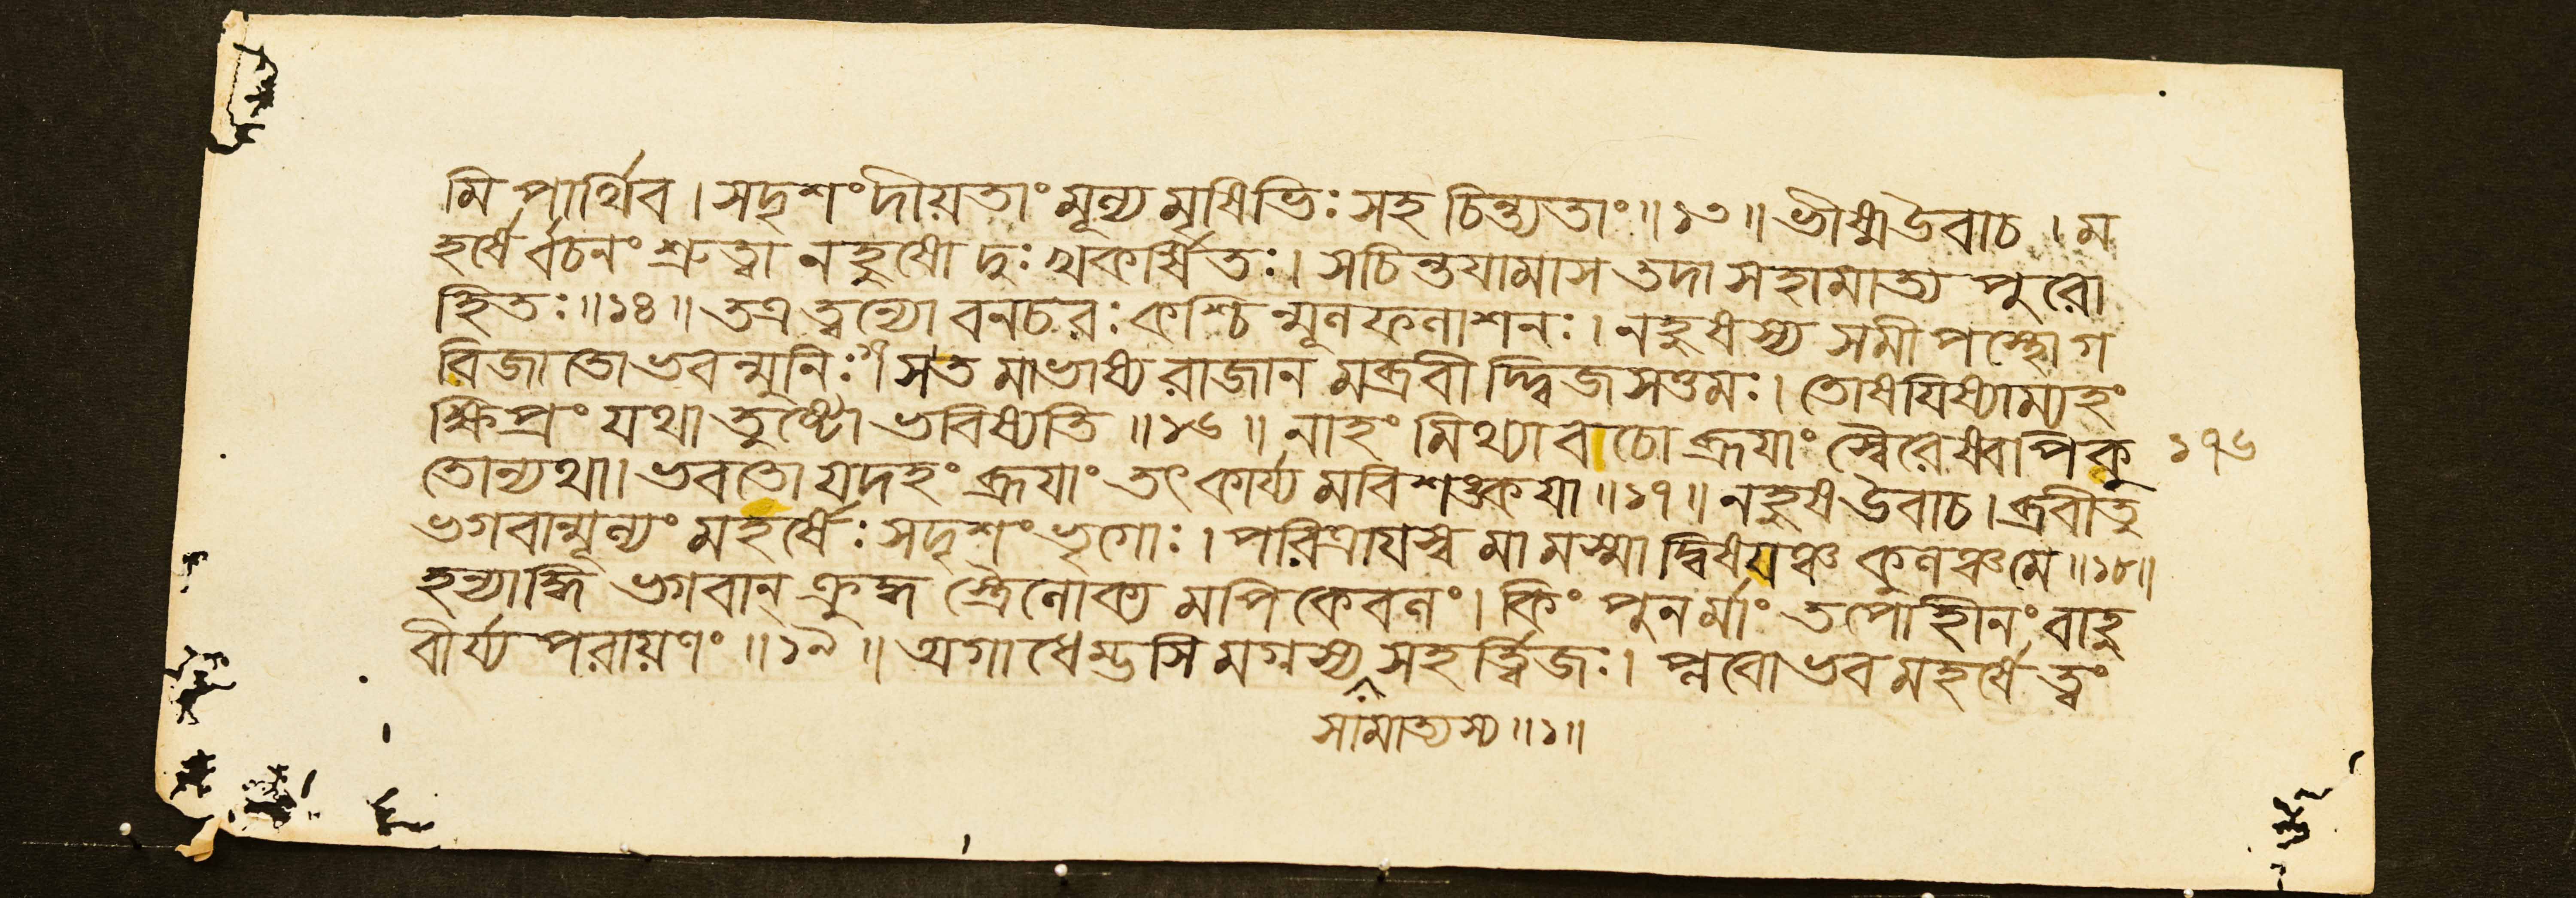 মি পার্থিব । সদৃশং দীয়তাং মূল্য মৃষিভিঃ সহ চিন্ত্যতাং ॥ ১৩ ॥ ভীষ্মউবাচ । ম
হর্ষে র্বচনং শ্রুত্বা নহুষো দুঃখকর্ষিতঃ । সচিন্তয়ামাস তদা সহামাত্য পুরো
হিতঃ ॥ ১৪ ॥ তত্র ত্বন্যো বনচরঃ কশ্চি ন্মূলফলাশনঃ । নহুষস্য সমীপস্থো গ
বিজাতো ভবন্মুনিঃ সত মাভাষ্য রাজান মব্রবী দ্দ্বিজসত্তমঃ । তোষয়িষ্যাম্যহং
ক্ষিপ্রং যথা তুষ্টো ভবিষ্যতি ॥ ১৬ ॥ নাহং মিথ্যাবচো ব্রূয়াং স্বৈরেষ্বপি কু ১৭৬
তোন্যথা । ভবতো যদহং ব্রূয়াং তৎকার্য্য মবিশঙ্কয়া ॥ ১৭ ॥ নহুষ উবাচ । ব্রবীতু
ভগবান্মূল্যং মহর্ষেঃ সদৃশং ভৃগোঃ । পরিত্রায়স্ব মা মস্মা দ্বিষয়ঞ্চ কুলঞ্চমে ॥ ১৮ ॥
হন্যাদ্ধি ভগবান্ ক্রুদ্ধ স্ত্রৈলোক্য মপি কেবলং । কিং পুনর্মাং তপোহীনং বাহু
বীর্য্য পরায়ণং ॥ ১৯ ॥ অগাধেম্ভসি মগ্নস্য সহর্ত্বিজঃ । প্লবো ভব মহর্ষে ত্বং
সামাত্যস্য ॥ ১ ॥